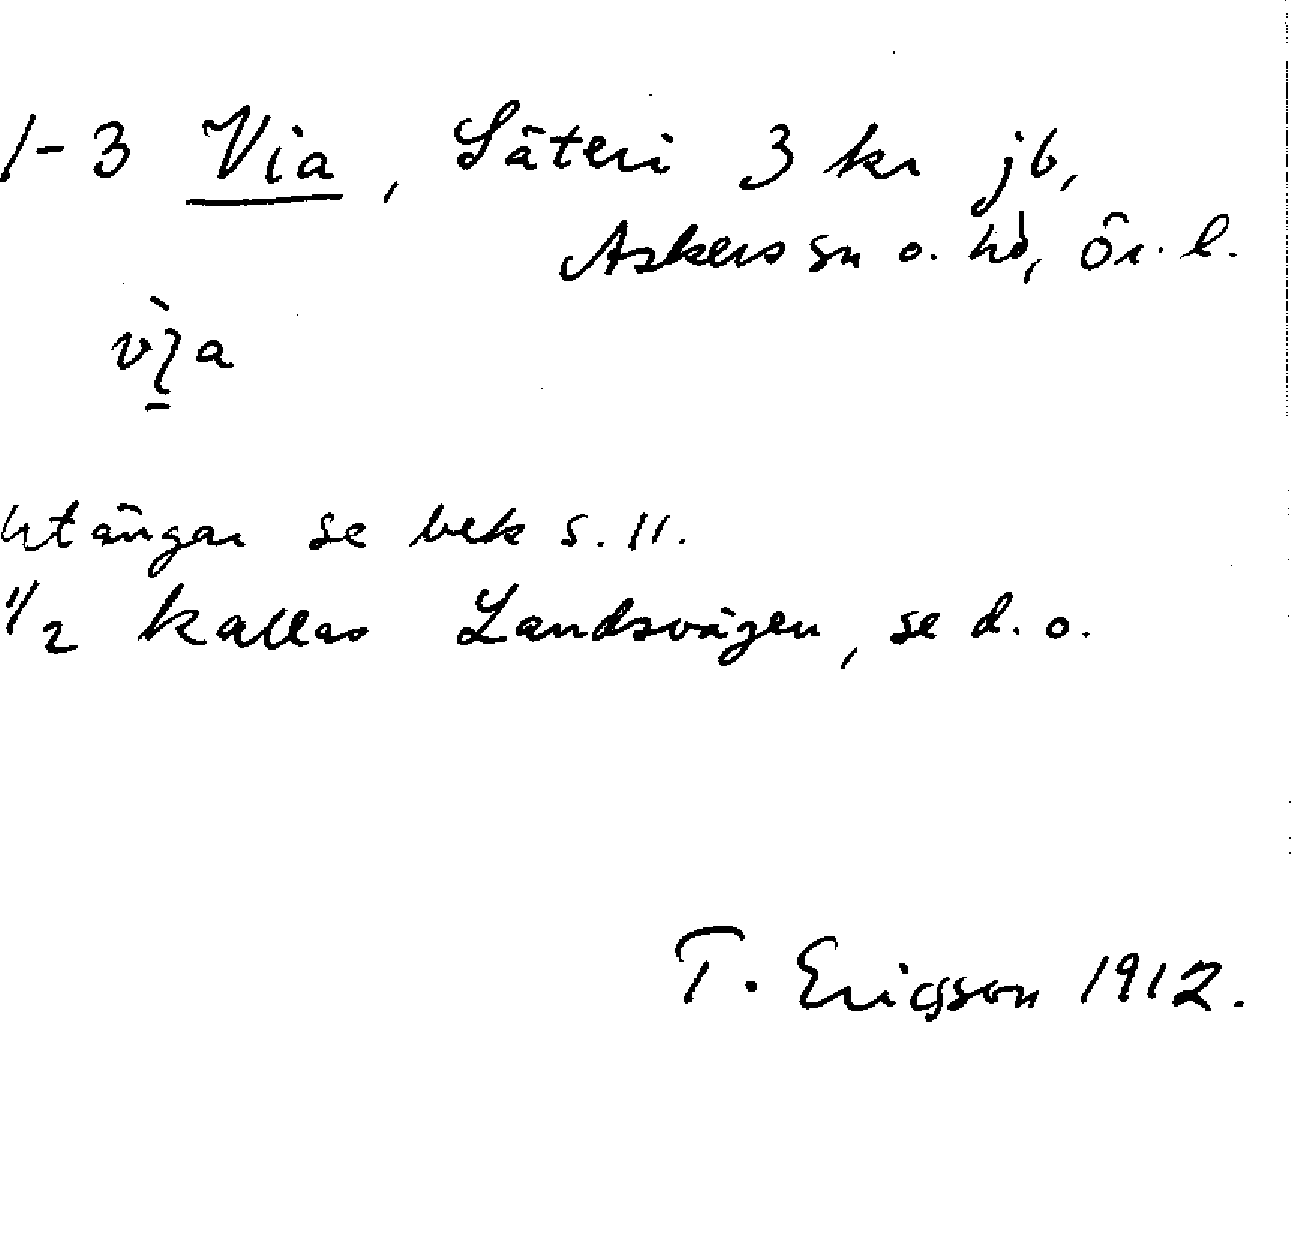 1-3 Via, Säteri 3 kr jb,
Askers sn o. hd, Ör. l.
Utängar se bek s. 11.
1/2 kallas Landsvägen, se d. o.
T. Ericsson 1912.